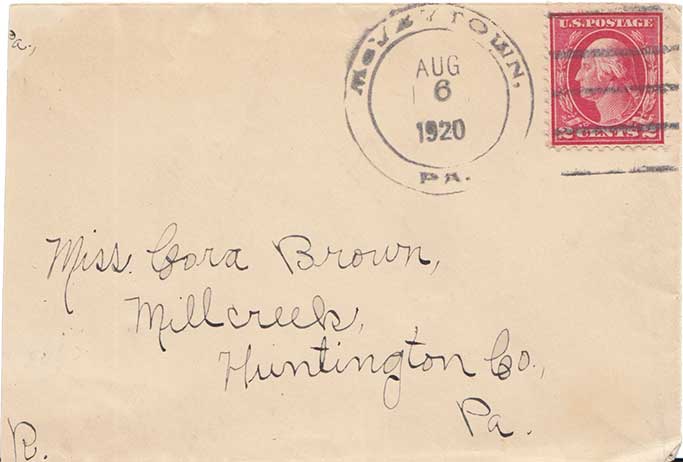 Pa.,
McVEYTOWN,
AUG
6
1920
PA.
U.S. POSTAGE
2 CENTS 2
Miss. Cora Brown,
Millcreek,
Huntington Co.,
Pa.
R.